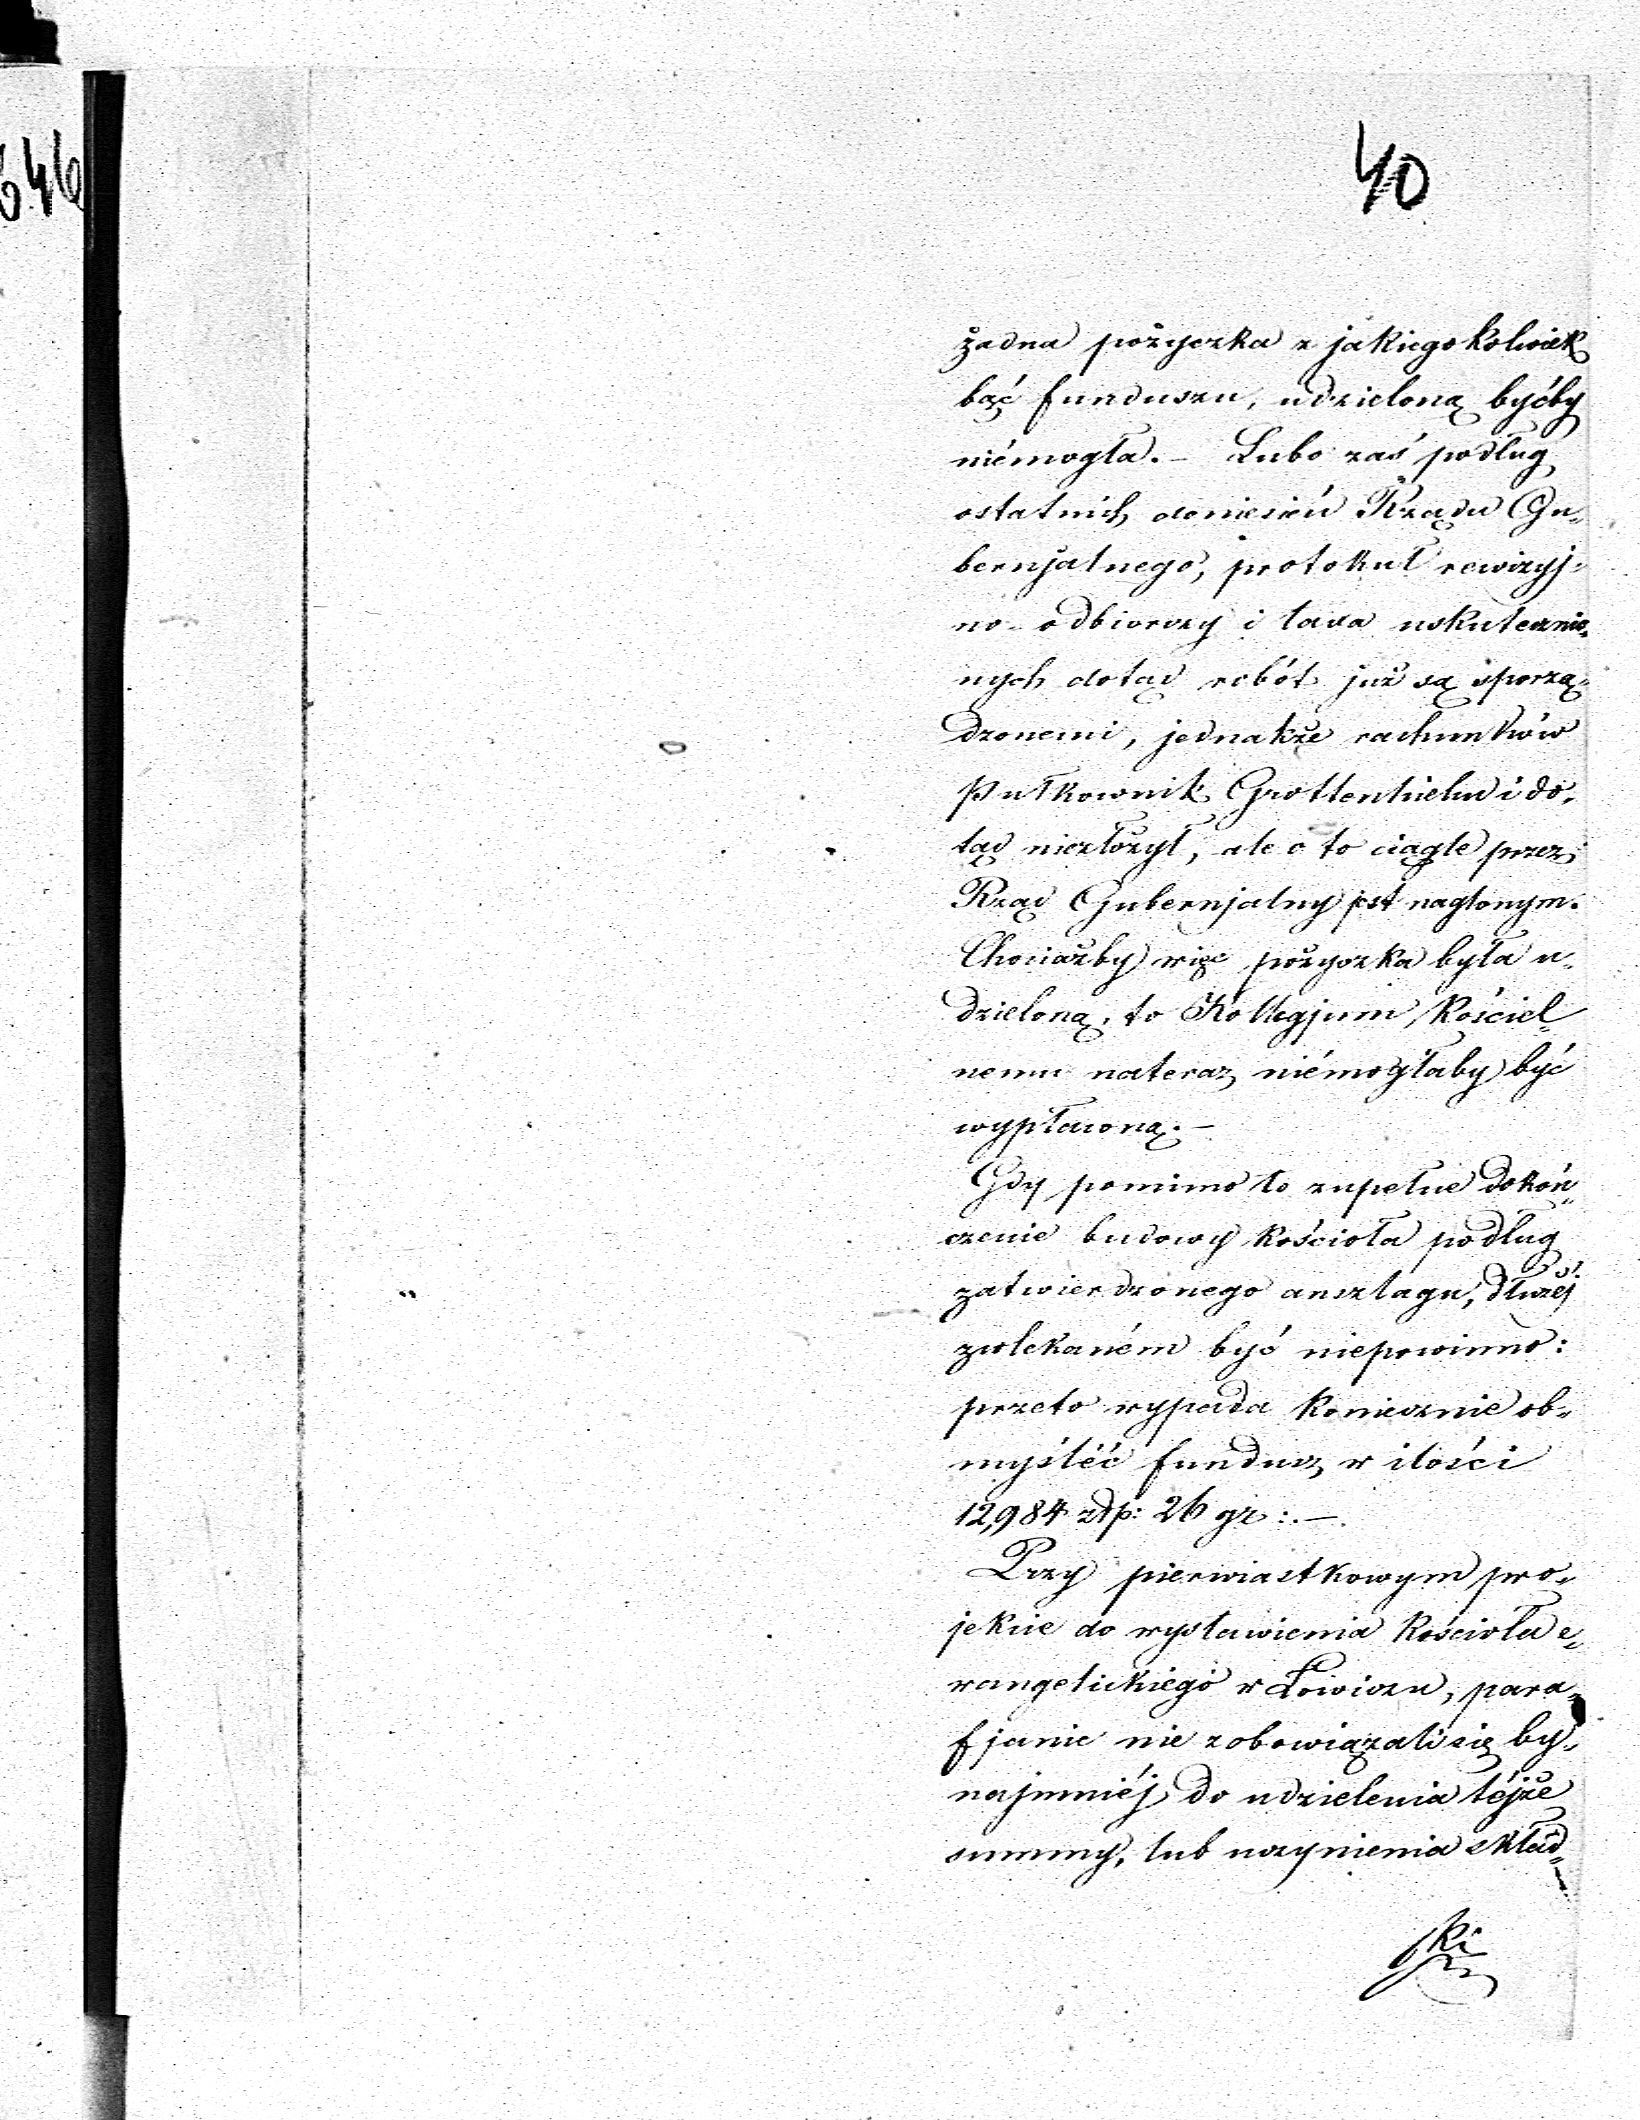 646
40
żadna pożyczka z jakiegokolwiek
bąć funduszu, udzieloną byćby
niémogła. – Lubo zaś podług
ostatnich doniesień Rządu Gu„
bernjalnego, protokuł rewizyj„
no-odbiorczy i taxa uskutecznio„
nych dotąd robót już są sporzą„
dzonemi, jednakże rachunków
Pułkownik i do„
tąd niezłożył, ale o to ciągle przez
Rząd Gubernjalny jest naglonym.
Chociażby więc pożyczka była u„
dzieloną, to Kollegjum Kościel„
nemu nateraz niémogłaby być
wypłaconą. –
Gdy pomimo to zupełne dokoń„
czenie budowy kościoła podług
zatwierdzonego anszlagu, dłużéj
zwlekaném być niepowinno:
przeto wypada koniecznie ob„
myśléć fundusz w ilości
12,984 złp: 26 gr: . –
Przy pierwiastkowym pro„
jekcie do wystawienia kościoła e„
wangelickiego w Łowiczu, para„
fjanie nie zobowiązali się by„
najmniéj do udzielenia téjże
summy, lub uczynienia skład„
ki